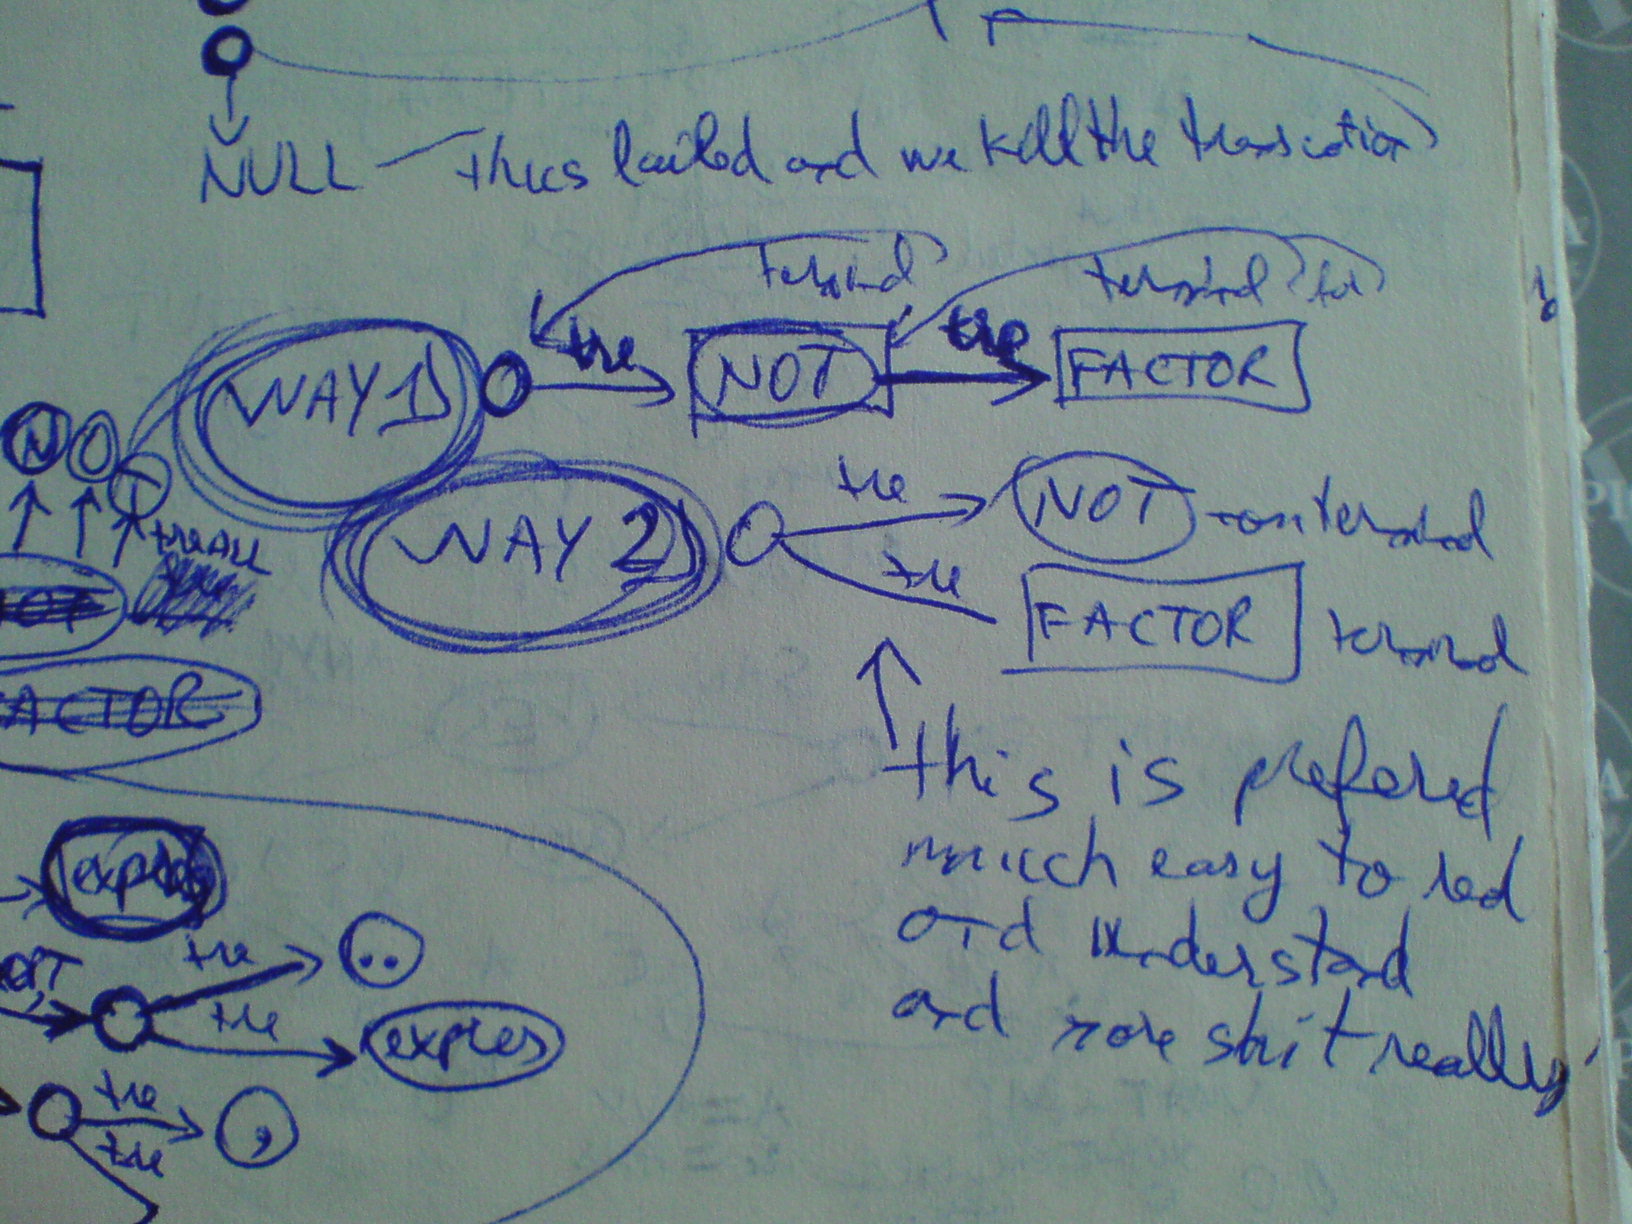 NULL - thus failed and we kill the transcation
terminal
terminal for
WAY 1
tre
NOT
tre
FACTOR
N O T
WAY 2
tre
NOT
nonterminal
tre
FACTOR
terminal
ACTOR
this is prefered
much easy to red
and understand
and more strit really
expres
tre
..
OPT
tre
expres
tre
,
tre